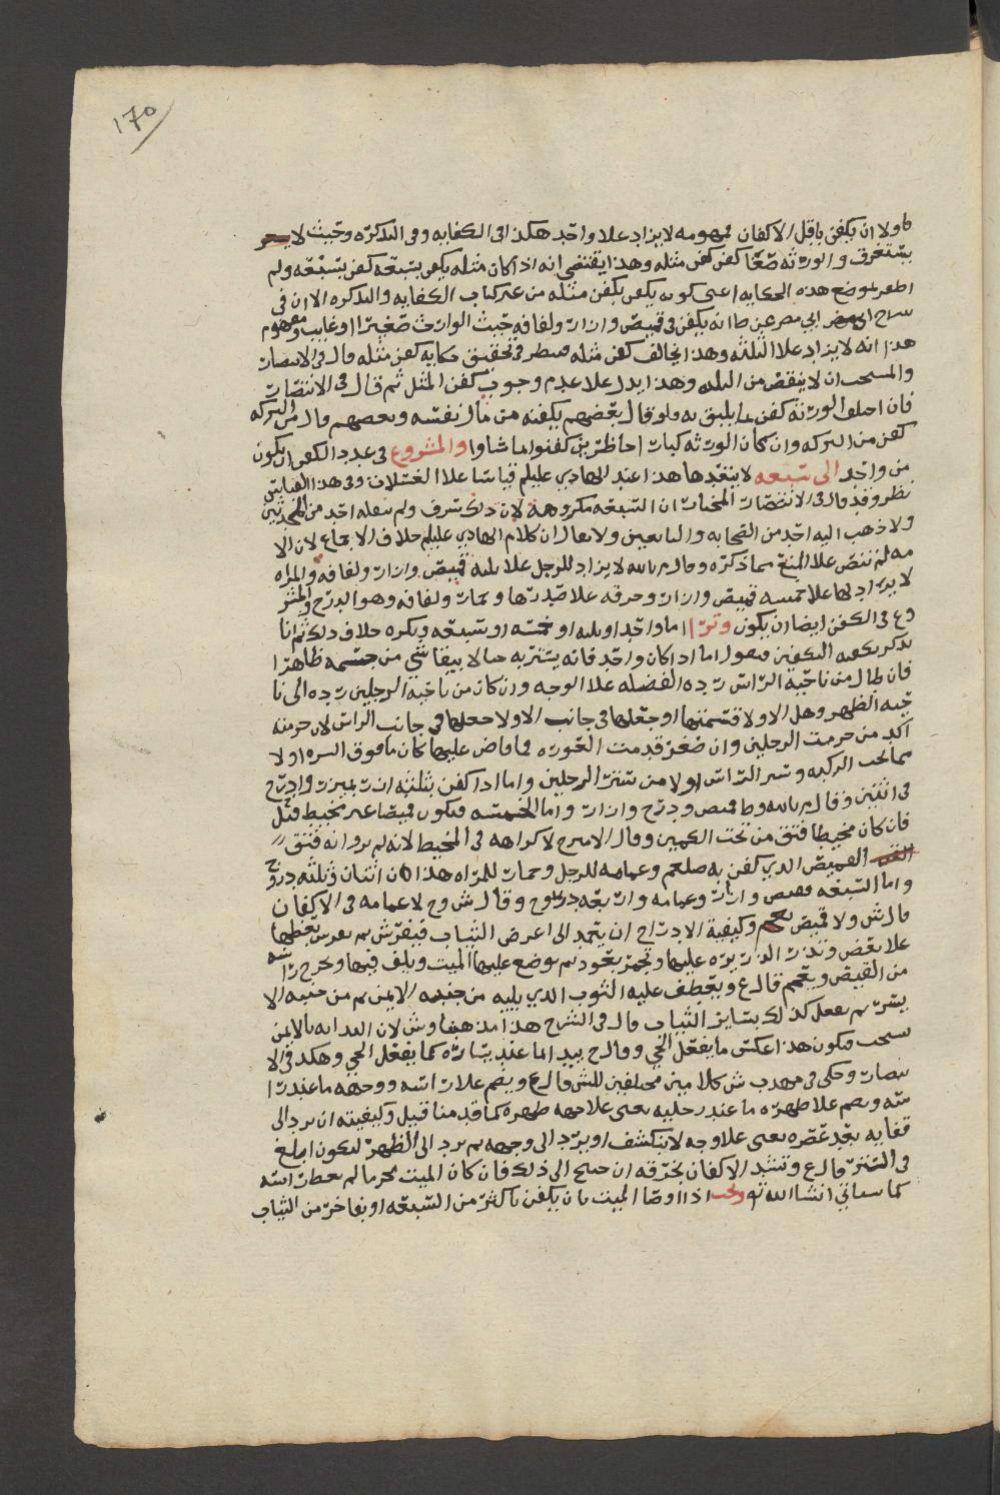 ١٧٥
ما ولا ان يكفن باقل الاكفان فمهومه لا يزاد علا واحد هكذا في الكفايه وفي التذكره وحيث لا
يستغرق والورثه صغا كفن كفن مثله وهذا يقتضي انه اذا كان مثله يكفن بسبعه كفن بسبعه ولم
لموضع هذه الحكايه اعني كونه يكفن بكفن مثله من غير كتاب الكفايه والتذكره الا ان في
ابي مضر عن ط انه يكفن في قميص وازار ولفافه حيث الوارث صغيرا او غايب ومفهوم
هذا انه لا يزاد علا الثلثه وهذا يخالف كفن مثله فينظر في تحقيق حكايه كفن مثله وقال في الانتصار
والمستحب ان لا ينقص من الثلثه وهذا يدل علا عدم وجوب كفن المثل ثم قال في الانتصار
فان اختلف الورثه كفن بما يليق به ولو قال بعضهم يكفنه من مال نفسه وبعضهم قال من التركه
كفن من التركه وان كان الورثه كبارا حاظرين كفنوا ما شاوا والمشروع في عدد الكفن ان يكون
من واحد الى سبعه لا يتعداها هذا عند الهادي عليلم قياسا علا الغسلات وفي هذا القياس
نظر وقد قال في الانتصار المختار ان السبعه مكروهة لان ذلك سرف ولم ينقله احد من المحدثين
ولا ذهب اليه احد من الصحابه والتابعين ولا يقال ان كلام الهادي عليلم خلاف الاجماع لان الا
مه لم تنص علا المنع مما ذكره وقال م بالله لا يزاد للرجل علا ثلثه قميص وازار ولفافه والمراه
لا يزاد لها علا خمسه قميص وازار وخرقه علا صدرها وخمار ولفافه وهو الدرج والمئزر
وع في الكفن ايضا ان يكون وترا اما واحد او ثلثه او خمسه او سبعه ويكره خلاف ذلك ثم انا
نذكر كيفيه التكفين فنقول اما اذا كان واحد فانه يستر به حتا لا يبقا شي من جسمه ظاهرا
فان طال من ناحية الراس رد هذه الفضله علا الوجه وان كان من ناحيه الرجلين رده الى نا
حيه الظهر وهل الاولا قسمتها او جعلها في جانب الاولا جعلها في جانب الراس لان حرمته
اكد من حرمت الرجلين وان صغر قدمت العوره فما فاض عليها كان ما فوق السره اولا
مما تحت الركبه وستر الراس اولا من ستر الرجلين واما اذا كفن بثلثه ازر بميزر وادرج
في اثنين وقال م بالله وط قميص ودرج وازار واما الخمسه فيكون قميصا غير مخيط قيل
فان كان مخيطا فتق من تحت الكمين وقال الامير ح لا كراهه في المخيط لانه لم يروا انه فتق
القميص الذي كفن به صلعم وعمامه للرجل وخمار للمراه هذان اثنان وثلثه دروج
واما السبعه فقميص وازار وعمامه واربعه دروج وقال ش وح لا عمامه في الاكفان
قال ش ولا قميص وكيفية الادراج ان يعمد الى اعرض الثياب فيفرش ثم يفرش بعضها
علا بعض وتذر الذريره عليها وتجمر بعود ثم يوضع عليها الميت ويلف فيها ويخرج راسه
من القميص ويعمم قال ع ويعطف عليه الثوب الذي يليه من جنبه الايمن ثم من جنبه الا
يسر ثم يفعل كذلك بساير الثياب قال في الشرح هذا مذهبنا وش لان البدايه بالايمن
تستحب فيكون هذا عكس ما يفعل الحي وقال ح يبدا بما عند يساره كما يفعل الحي وهكذا في الا
نتصار وحكى في مهذب ش كلامين مختلفين للش قال ع ويضم علا راسه ووجهه ما عند را
سه ويضم علا ظهره ما عند رجليه يعني علا جهه ظهره كما قد منا قيل وكيفيته ان يرد الى
قفايه بعد عصره يعني علا وجه لا ينكشف او يرد الى وجهه ثم يرد الى الظهر ليكون ابلغ
في التستر قال ع وتشد الاكفان بخرقه ان احتيج الى ذلك فان كان الميت محرما لم يغط راسه
كما سياتي انشا الله تع اذا اوصا الميت بان يكفن باكثر من السبعه او بفاخر من الثياب